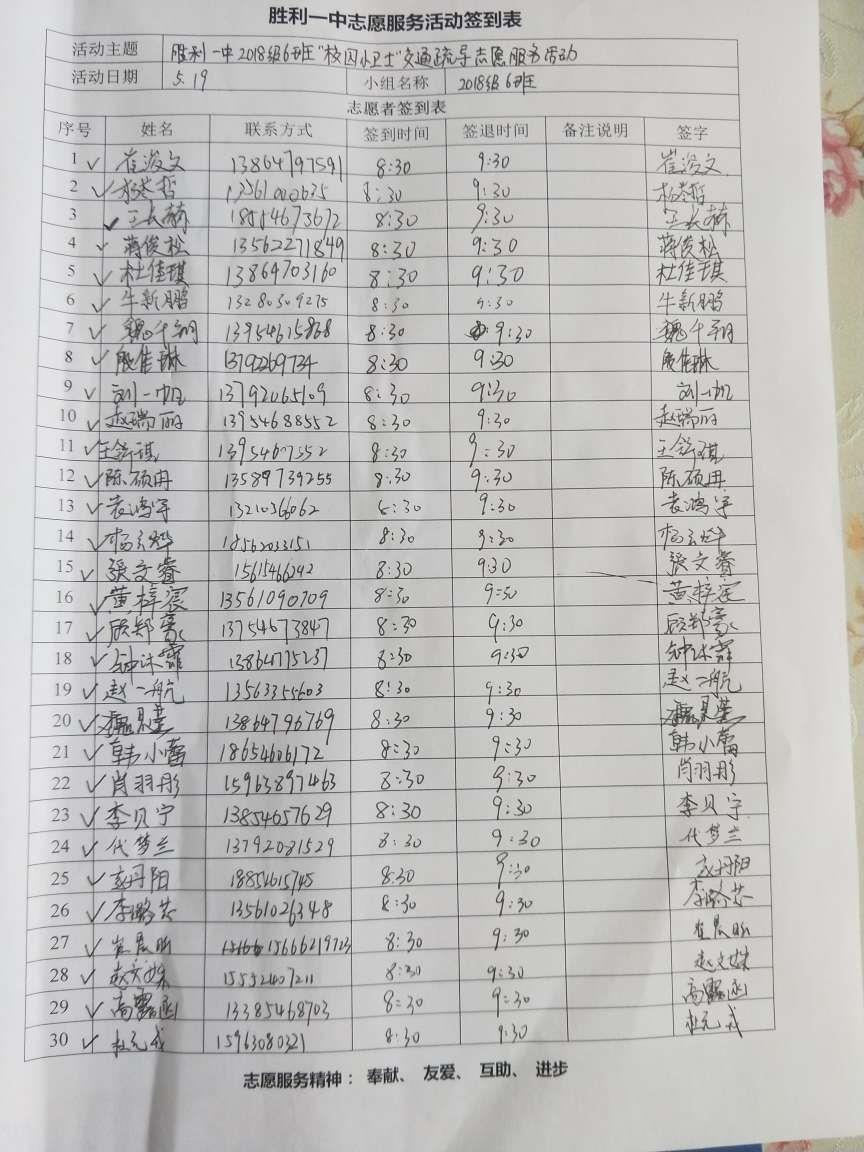 胜利一中志愿服务活动签到表
活动主题 胜利一中2018级6班"校园小卫士"交通疏导志愿服务活动
活动日期 5.19 小组名称 2018级6班
志愿者签到表
序号 姓名 联系方式 签到时间 签退时间 备注说明 签字
1 ✓ 崔浚文 13864797591 8:30 9:30 崔浚文
2 ✓ 8:30 9:30
3 ✓ 王长赫 18554673672 8:30 9:30 王长赫
4 ✓ 蒋俊松 13562271849 8:30 9:30 蒋俊松
5 ✓ 杜佳琪 13864703160 8:30 9:30 杜佳琪
6 ✓ 牛新鹏 13280309275 8:30 9:30 牛新鹏
7 ✓ 13954615868 8:30 9:30
8 ✓ 殷佳琳 13792269734 8:30 9:30 殷佳琳
9 ✓ 刘一帆 13792065109 8:30 9:30 刘一帆
10 ✓ 赵瑞丽 13954688552 8:30 9:30 赵瑞丽
11 ✓ 王舒祺 8:30 9:30 王舒祺
12 ✓ 陈硕冉 13589739255 8:30 9:30 陈硕冉
13 ✓ 袁鸿宇 13210366062 8:30 9:30 袁鸿宇
14 ✓ 18562033151 8:30 9:30
15 ✓ 張文睿 8:30 9:30 張文睿
16 ✓ 黄梓宸 13561090709 8:30 9:30 黄梓宸
17 ✓ 顾郑豪 13754673847 8:30 9:30 顾郑豪
18 ✓ 钟沐霖 13864775237 8:30 9:30 钟沐霖
19 ✓ 赵一航 13563355603 8:30 9:30 赵一航
20 ✓ 13864796769 8:30 9:30
21 ✓ 韩小蕾 18654606172 8:30 9:30 韩小蕾
22 ✓ 肖羽彤 15963897463 8:30 9:30 肖羽彤
23 ✓ 李贝宁 13854657629 8:30 9:30 李贝宁
24 ✓ 代梦兰 13792081529 8:30 9:30 代梦兰
25 ✓ 玄丹阳 18854615745 8:30 9:30 玄丹阳
26 ✓ 李潞芸 13561026348 8:30 9:30 李潞芸
27 ✓ 崔晨昕 15666219723 8:30 9:30 崔晨昕
28 ✓ 赵文姝 15552407211 8:30 9:30 赵文姝
29 ✓ 高露函 13385468703 8:30 9:30 高露函
30 ✓ 杜元戎 15963080321 8:30 9:30 杜元戎
志愿服务精神： 奉献、 友爱、 互助、 进步